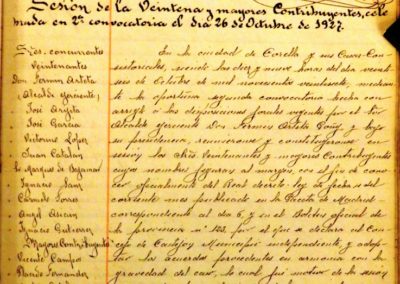 Sesión de la Veintena y mayores Contribuyentes, cele
brada en 2ª convocatoria el día 26 de Octubre de 1927.
Sres. concurrentes
Veintenantes
Don Fermin Arteta
(Alcalde gerente)
José Argita
José Garcia
Victorino López
Juan Catalán
Marques de
Ignacio Sanz
Carmelo Torres
Angel Ascun
Ignacio Gutierrez
Mayores Contribuyentes
Vicente Campo
Placido Fernandez
En la ciudad de Corella y sus Casas Con
sistoriales, siendo las diez y nueve horas del día veinti
seis de Octubre de mil novecientos veintisiete, median
te la oportuna segunda convocatoria hecha con
arreglo a las disposiciones forales vigentes por el Sor
Alcalde gerente Don Fermin Arteta y bajo
su presidencia, reunieronse y constituyeronse en
sesión los Sres. Veintenantes y mayores Contribuyentes
cuyos nombres figuran al margen, con el fin de cono
cer oficialmente del Real decreto-ley de fecha del
corriente mes publicado en la Gaceta de Madrid
correspondiente al día 6, y en el Boletin oficial de
la provincia nº 122 por el que se declara al Con
cejo de Castejon Municipio independiente, y adop
tar los acuerdos procedentes en armonia con la
gravedad del caso, lo cual fué motivo de la sesión